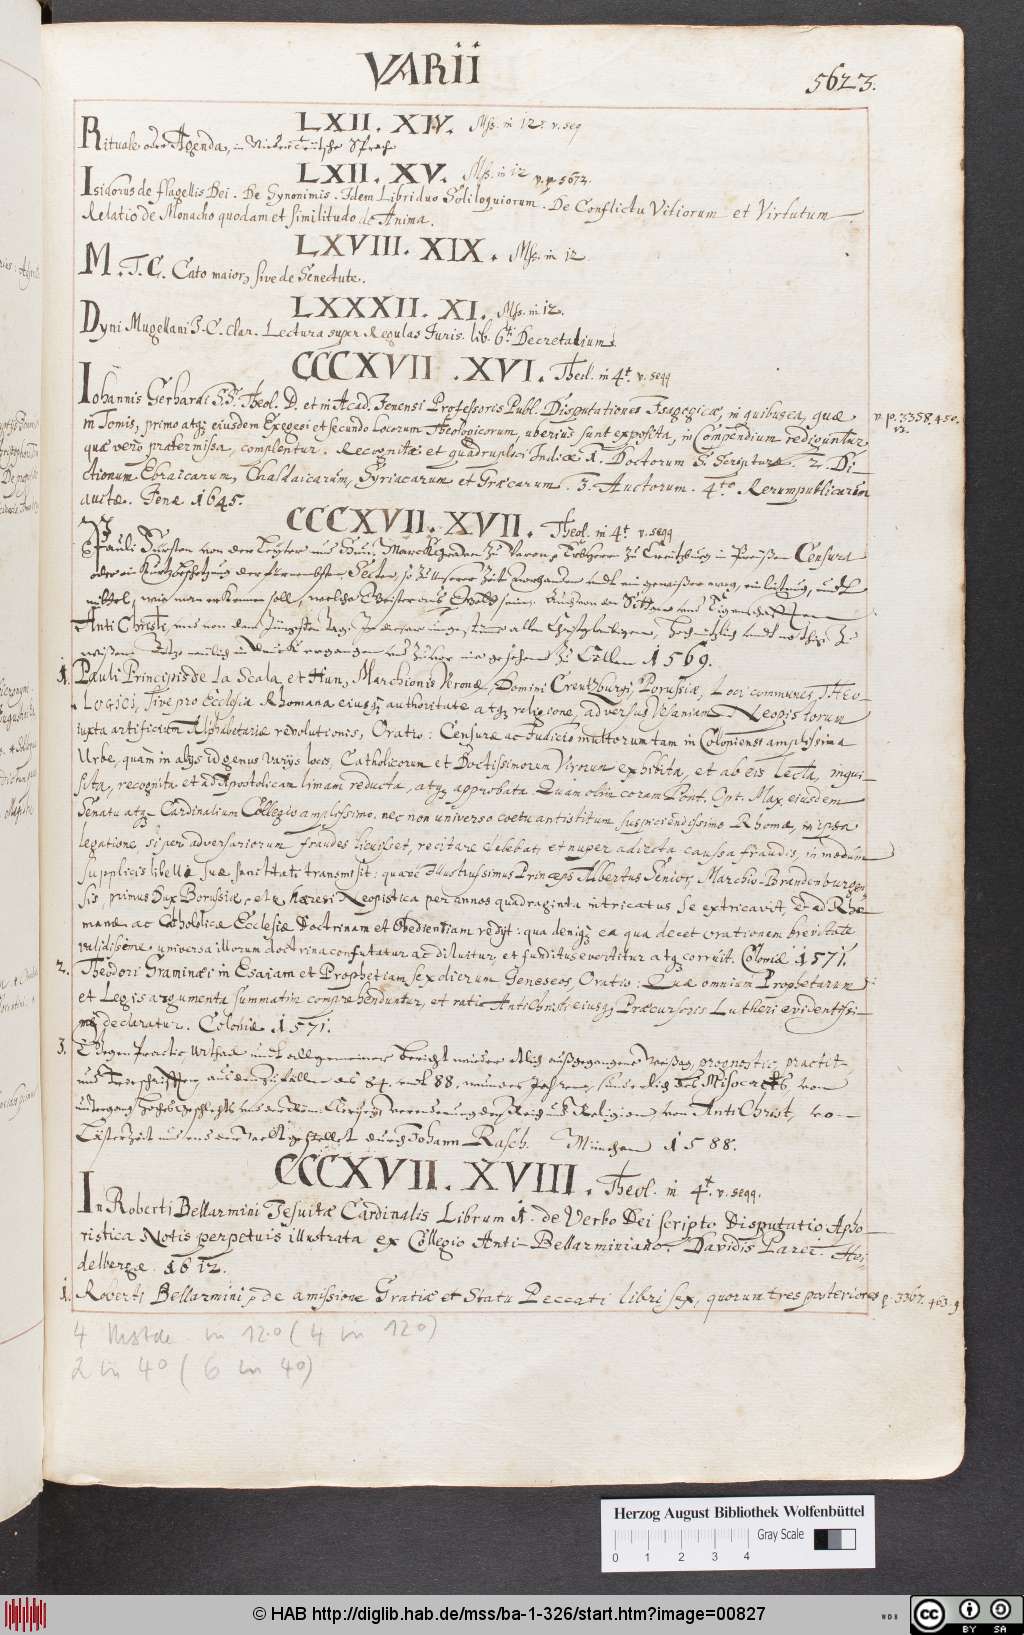 VARII
5623.
LXII. XIV. Mss. in 12. v. seq
Rituale oder Agenda, in Niederteutscher Sprach
LXII. XV. Mss. in 12 v. p. 5672.
Isidorus de flagellis Dei. De Synonimis. Idem Libri duo Soliloquiorum. De Conflictu Vitiorum et Virtutum
Relatio de Monacho quodam et similitudo de Anima.
LXVIII. XIX. Mss. in 12
M. T. C. Cato maior, sive de Senectute.
LXXXII. XI. Mss. in 12.
Dyni Mugellani J. C. clar. Lectura super Regulas Juris. lib. 6ti Decretalium.
CCCXVII. XVI. Theol. in 4t. v. seqq
Iohannis Gerhardi SS. Theol. D. et in Acad. Jenensi Professoris Publ. Disputationes Isagogicæ, in quibus ea, quæ v. p. 3358, 450.
in Tomis, primo atq; eiusdem Exegesi et secundo Locorum Theologicorum, uberius sunt exposita, in Compendium rediguntur,
quæ vero prætermissa, complentur. Recognitæ et quadruplici Indice 1. Doctorum S. Scripturæ. 2. Di-
ctionum Ebraicarum, Chaldaicarum, Syriacarum et Græcarum. 3. Auctorum. 4to Rerum publicarum
auctæ. Jenæ 1645.
CCCXVII. XVII. Theol. in 4t v. seqq
Pauli Fürsten von der Leyter und Hun, Marckgraffen zu Vern, Erbherr zu Creitzburg in Preußen Censura
Secten, so zu unserer Zeit vorhanden
mittel, wie man erkennen soll, welche Geister aus Gott seien. Auch von den Sitten und Eigenschafften
Anti Christi, und von dem Jüngsten tag.
zu Cöllen 1569.
1. Pauli Principis de La Scala, et Hun, Marchionis Veronæ, Domini Creutzburgi Porussiæ, Loci communes, Theo-
Logici, sive pro Ecclesia Rhomana eiusq; authoritate atq; religione, adversus Vesaniam Neopistorum
iuxta artificium Alphabetariæ revolutionis, Oratio: Censuræ ac Iudicio multorum tam in Coloniensi amplissima
Urbe, quàm in alijs id genus varijs locis, Catholicorum et Doctissimorum Virorum exhibita, et ab eis lecta, inqui-
sita, recognita et ad Apostolicam limam reducta, atq; approbata. Quam olim coram Pont. Opt. Max. eiusdem
Senatu atq; Cardinalium Collegio amplissimo. nec non universo coetu antistitum suspiciendissimo Rhomæ, in ipsa
legatione, si per adversariorum fraudes licuisset, recitare debebat, et nuper adiecta caussa fraudis, in modum
supplicis libelli suæ sanctitati transmisit: quare Illustrissimus Princeps Albertus Senior, Marchio Brandenburgen-
sis, primus Dux Borussiæ, etc. hæresi Neopistica per annos quadraginta intricatus se extricavit, et ad Rho-
manæ ac Catholicæ Ecclesiæ Doctrinam et Obedientiam redijt: qua deniq; ea qua decet orationem brevitate
validissime universa illorum doctrina confutatur ac diluitur, et funditus evertitur atq; corruit. Coloniæ 1571.
2. Theodori Graminæi in Esaiam et Prophetiam sex dierum Geneseos, Oratio: Quæ omnium Prophetarum
et Legis argumenta summatim comprehenduntur, et ratio Antichristi eiusq; Præcursoris Lutheri evidentissi-
me declaratur. Coloniæ 1571.
3. Gegen Practic, wider etlich außgegangene Weissag, prognostic, practick
und Schrifften 84. und 88.
AntiChrist, von
durch Johann Rasch. München 1588.
CCCXVII. XVIII. Theol. in 4t. v. seqq.
In Roberti Bellarmini Jesuitæ Cardinalis Librum 1. de Verbo Dei scripto Disputatio Apho-
ristica Notis perpetuis illustrata ex Collegio Anti-Bellarminiano. Davidis Parei. Hei-
delbergæ. 1612.
1. Roberti Bellarmini, de amissione Gratiæ et Statu Peccati libri sex, quorum tres posteriores p. 3367. 463. 9
in 120 (4 in 120)
2 in 40 (6 in 40)
Herzog August Bibliothek Wolfenbüttel
Gray Scale
0 1 2 3 4
© HAB http://diglib.hab.de/mss/ba-1-326/start.htm?image=00827
WDB
cc BY SA